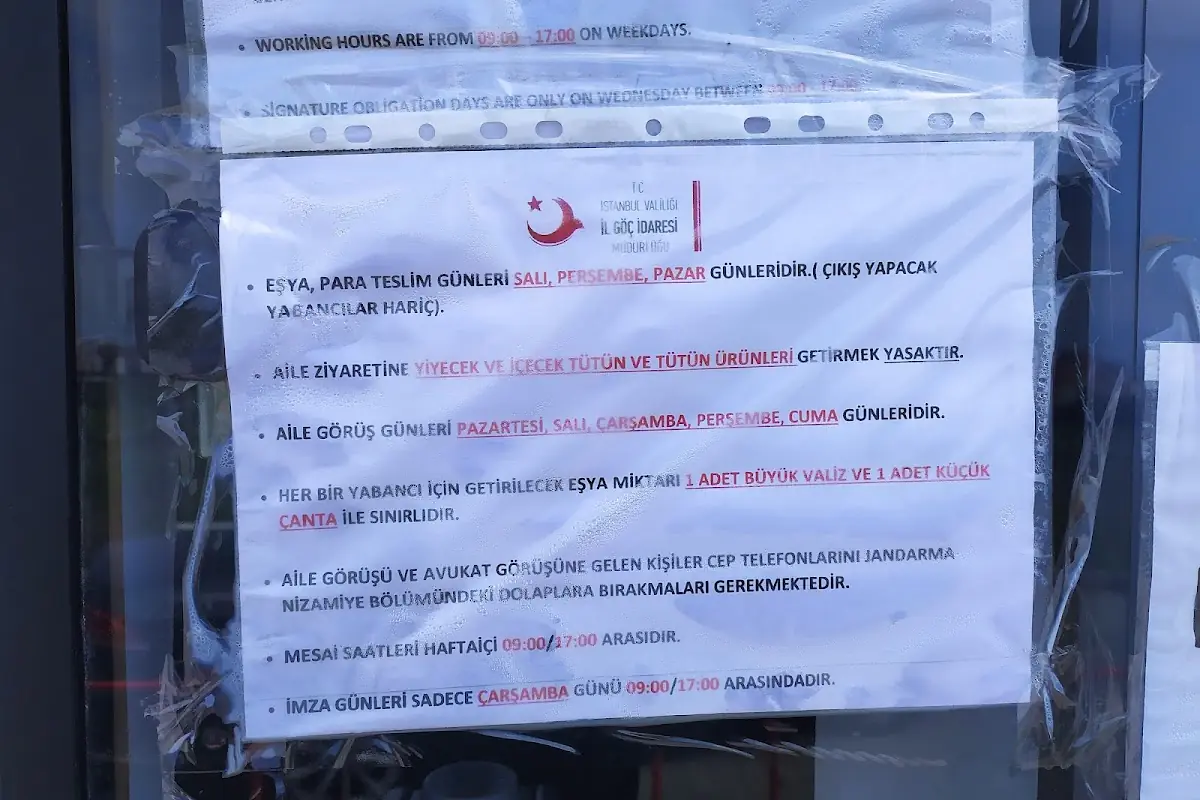 • WORKING HOURS ARE FROM 09:00 - 17:00 ON WEEKDAYS.
• SIGNATURE OBLIGATION DAYS ARE ONLY ON WEDNESDAY BETWEEN 09:00 - 17:00
T.C.
İSTANBUL VALİLİĞİ
İL GÖÇ İDARESİ
MÜDÜRLÜĞÜ
• EŞYA, PARA TESLİM GÜNLERİ SALI, PERŞEMBE, PAZAR GÜNLERİDİR.( ÇIKIŞ YAPACAK
YABANCILAR HARİÇ).
• AİLE ZİYARETİNE YİYECEK VE İÇECEK TÜTÜN VE TÜTÜN ÜRÜNLERİ GETİRMEK YASAKTIR.
• AİLE GÖRÜŞ GÜNLERİ PAZARTESİ, SALI, ÇARŞAMBA, PERŞEMBE, CUMA GÜNLERİDİR.
• HER BİR YABANCI İÇİN GETİRİLECEK EŞYA MİKTARI 1 ADET BÜYÜK VALİZ VE 1 ADET KÜÇÜK
ÇANTA İLE SINIRLIDIR.
• AİLE GÖRÜŞÜ VE AVUKAT GÖRÜŞÜNE GELEN KİŞİLER CEP TELEFONLARINI JANDARMA
NİZAMİYE BÖLÜMÜNDEKİ DOLAPLARA BIRAKMALARI GEREKMEKTEDİR.
• MESAİ SAATLERİ HAFTAİÇİ 09:00/17:00 ARASIDIR.
• İMZA GÜNLERİ SADECE ÇARŞAMBA GÜNÜ 09:00/17:00 ARASINDADIR.